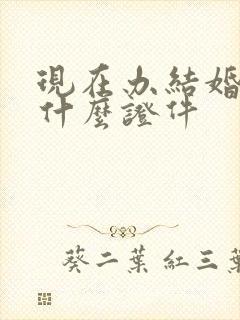 現在办結婚
什麼證件
葵二葉 紅三葉